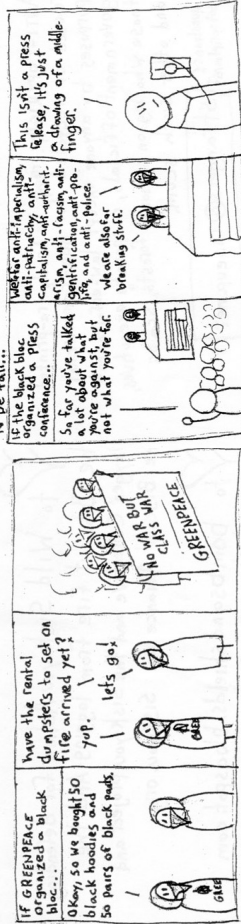 IF GREENPEACE
organized a black
bloc...
Okay, so we bought 50
black hoodies and
50 pairs of black pants.
GREE
have the rental
dumpsters to set on
fire arrived yet?
yup.
lets go!
GREEN
NO WAR BUT
CLASS WAR
GREENPEACE
to be fair...
IF the black bloc
organized a press
conference...
So far you've talked
a lot about what
you're against, but
not what you're for.
We're for anti-imperialism,
anti-patriarchy, anti-
capitalism, anti-authorit-
arism, anti-racism, anti-
gentrification, anti-pro-
life, and anti-police.
we are also for
breaking stuff.
This isn't a press
release, it's just
a drawing of a middle
finger.